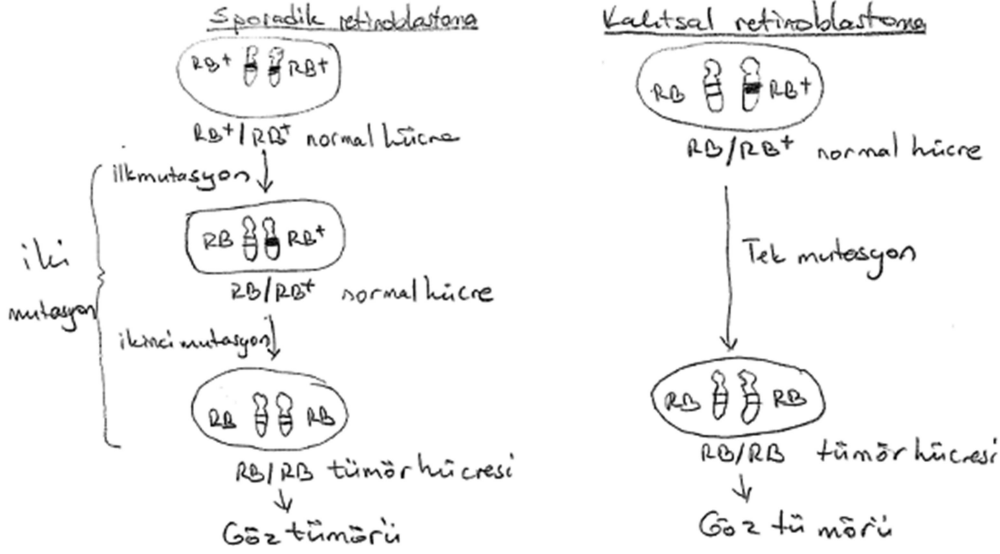 Sporadik retinoblastoma
RB⁺ RB⁺
RB⁺/RB⁺ normal hücre
ilk mutasyon
RB RB⁺
RB/RB⁺ normal hücre
iki
mutasyon
ikinci mutasyon
RB RB
RB/RB tümör hücresi
Göz tümörü
Kalıtsal retinoblastoma
RB RB⁺
RB/RB⁺ normal hücre
Tek mutasyon
RB RB
RB/RB tümör hücresi
Göz tümörü